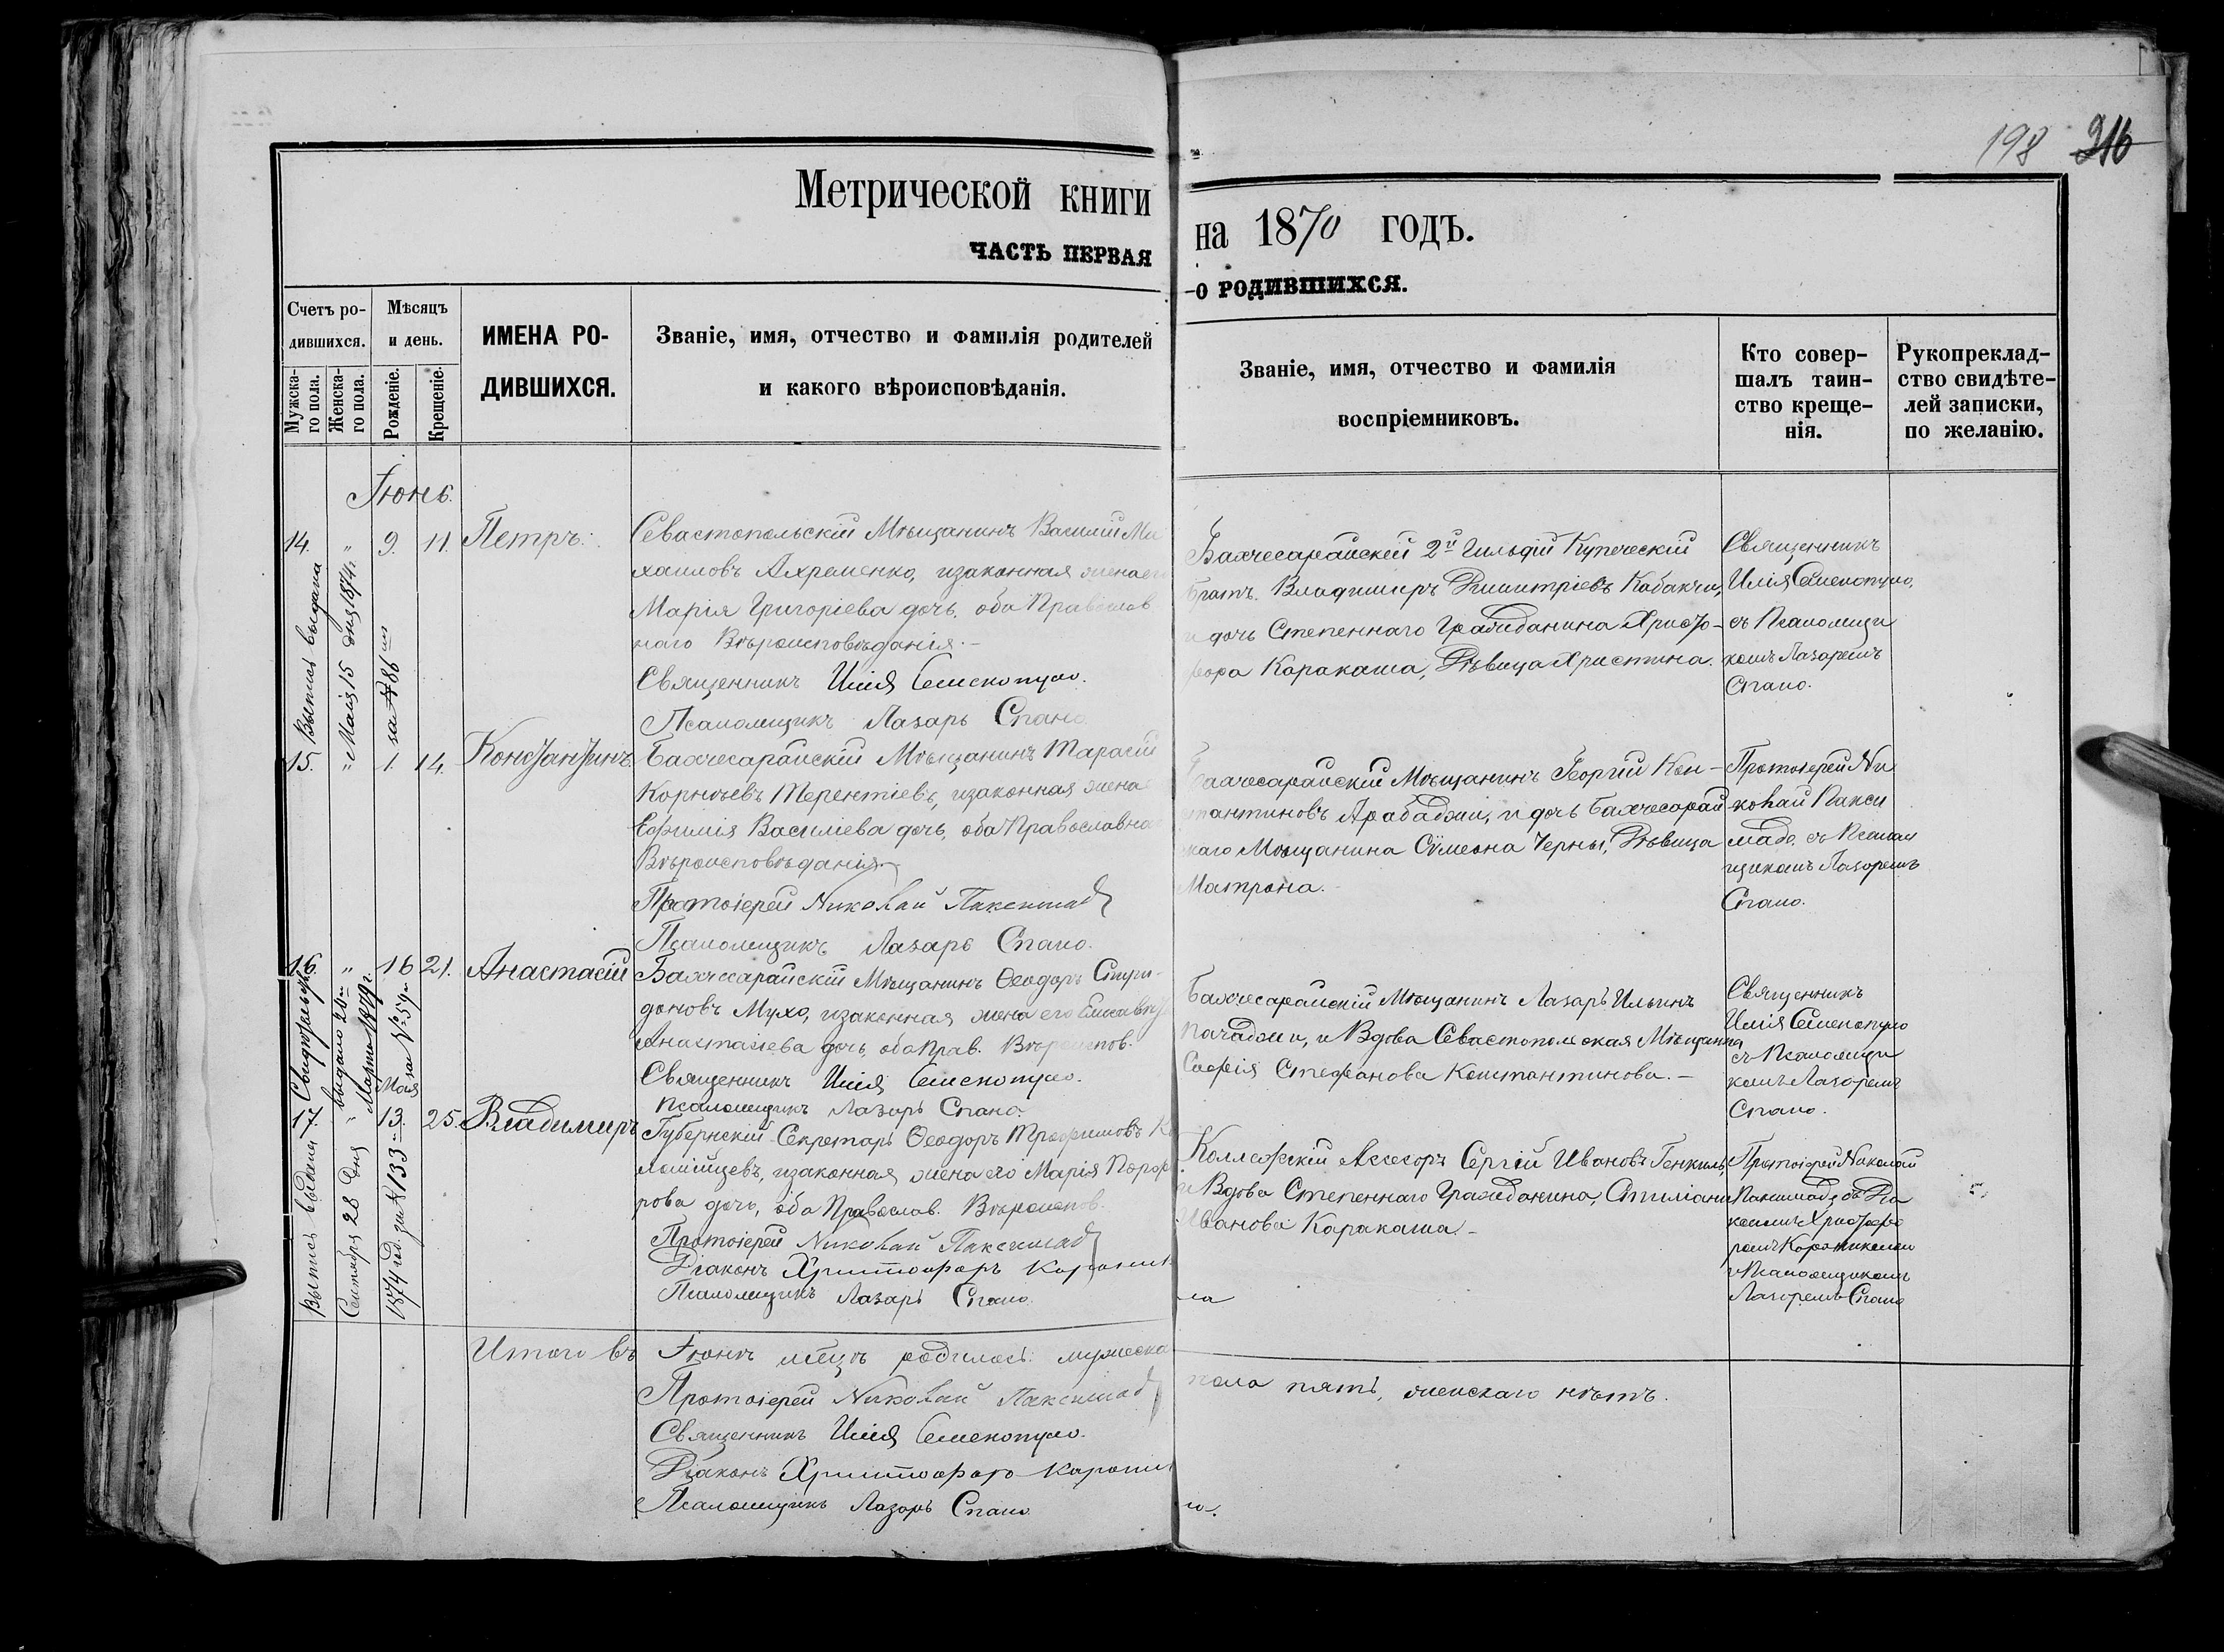 198 216
Метрической книги
на 1870 годъ.
ЧАСТЬ ПЕРВАЯ
О РОДИВШИХСЯ.
Счетъ ро-
дившихся.
Мужска-
го пола.
Женска-
го пола.
Мѣсяцъ
и день.
Рожденіе.
Крещеніе.
ИМЕНА РО-
ДИВШИХСЯ.
Званіе, имя, отчество и фамилія родителей
и какого вѣроисповѣданія.
Званіе, имя, отчество и фамилія
воспріемниковъ.
Кто совер-
шалъ таин-
ство креще-
нія.
Рукопреклад-
ство свидѣте-
лей записки,
по желанію.
Іюнь.
14. " 9. 11. Петръ.
Выпись выдана
Мая 15 дня 1874 г.
за № 86
Севастопольскій Мѣщанинъ Василій Ми
хаиловъ Ахременко, изаконная жена его
Марія Григоріева дочь, оба Православ
наго Вѣроисповѣданія.-
Священникъ Илія Семенопуло.
Псаломщикъ Лазарь Спано.
Бахчесарайскій 2й Гильдіи Купеческій
братъ Владимиръ Димитріевъ Кабакчи,
и дочь Степеннаго Гражданина Христо-
фора Каракаша, Дѣвица Христина.
Священникъ
Илія Семенопуло,
съ Псаломщи
комъ Лазаремъ
Спано.
15. " 1. 14. Константинъ
Бахчесарайскій Мѣщанинъ Тарасій
Корнѣевъ Терентіевъ, изаконная жена
Ефимія Василіева дочь, оба Православна
Вѣроисповѣданія
Протоіерей Николай Паксимад
Псаломщикъ Лазарь Спано.
Бахчесарайскій Мѣщанинъ Георгій Кон-
стантиновъ Арабаджи, и дочь Бахчесарай
скаго Мѣщанина Сѵмеона Черны, Дѣвица
Матрона.
Протоіерей Ни
колай Пакси
мадо, съ Псалом
щикомъ Лазаремъ
Спано.
16. " 16 21. Анастасій
Свидѣтельство
выдано 20
Марта 1879 г.
за № 59
Бахчесарайскій Мѣщанинъ Ѳеодоръ Спири-
доновъ Мухо, изаконная жена его Елисавета
Анастасіева дочь, оба Прав. Вѣроиспов.
Священникъ Илія Семенопуло.
Псаломщикъ Лазарь Спано.
Бахчесарайскій Мѣщанинъ Лазарь Ильинъ
Пачаджи, и Вдова Севастопольская Мѣщанка
Софія Стефанова Константинова.-
Священникъ
Илія Семенопуло
съ Псаломщи
комъ Лазаремъ
Спано.
Мая
17. " 13. 25. Владимиръ
Выпись выдана
Сентября 28 дня
1874 год. за № 133
Губернскій Секретарь Ѳеодоръ Трофимовъ Ко
ломійцевъ, изаконная жена его Марія
рова дочь, оба Православ. Вѣроиспов.
Протоіерей Николай Паксимад
Діаконъ Христофоръ
Псаломщикъ Лазарь Спано.
Коллежскій Ассесоръ Сергій Ивановъ Генкель,
и Вдова Степеннаго Гражданина, Стиліани
Иванова Каракаша -
Протоіерей Николай
Паксимадо, съ Діа
кономъ Христофо
ромъ
и Псаломщикомъ
Лазаремъ Спано
Итого въ Іюнѣ мѣсцѣ родилось: мужеска
пола пять, женскаго нѣтъ.
Протоіерей Николай Паксимад
Священникъ Илія Семенопуло.
Діаконъ Христофоръ
Псаломщикъ Лазарь Спано